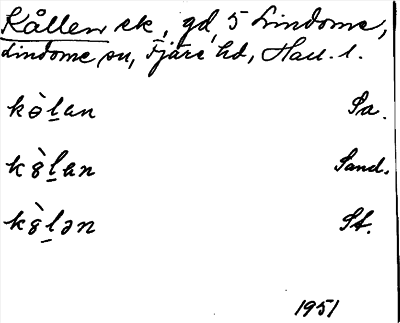 Kållen ek, gd, 5 Lindome,
Lindome sn, Fjäre hd, Hall. l.
kòḻan Sa.
k8̀ḻan Sand.
k8̀ḻən St.
1951